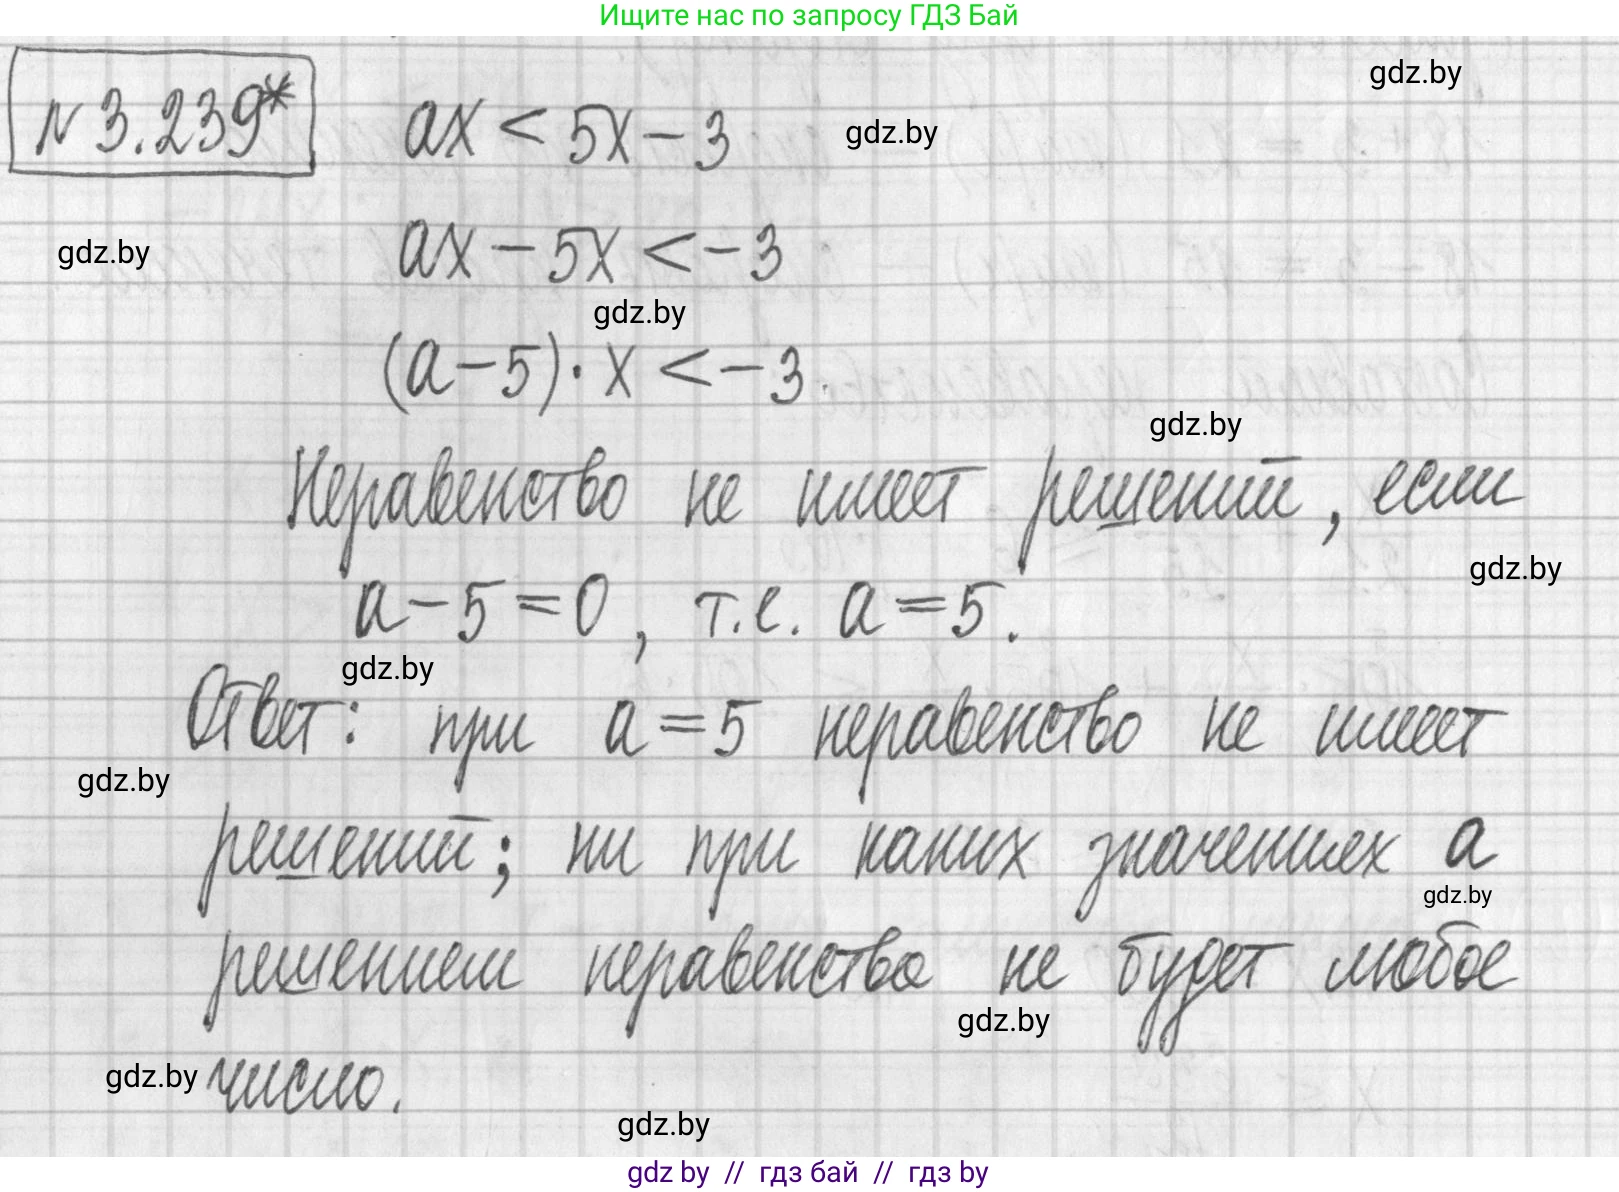 Ищите нас по запросу ГДЗ Бай
gdz.by
N 3.239* ax < 5x - 3
gdz.by
ax - 5x < -3
gdz.by
gdz.by
(a - 5) · x < -3.
gdz.by
Неравенство не имеет решений, если
gdz.by
a - 5 = 0, т.е. a = 5.
gdz.by
Ответ: при a = 5 неравенство не имеет
gdz.by
решений; ни при каких значениях a
gdz.by
решением неравенства не будет любое
gdz.by
gdz.by
число.
gdz.by
gdz by // гдз бай // гдз by